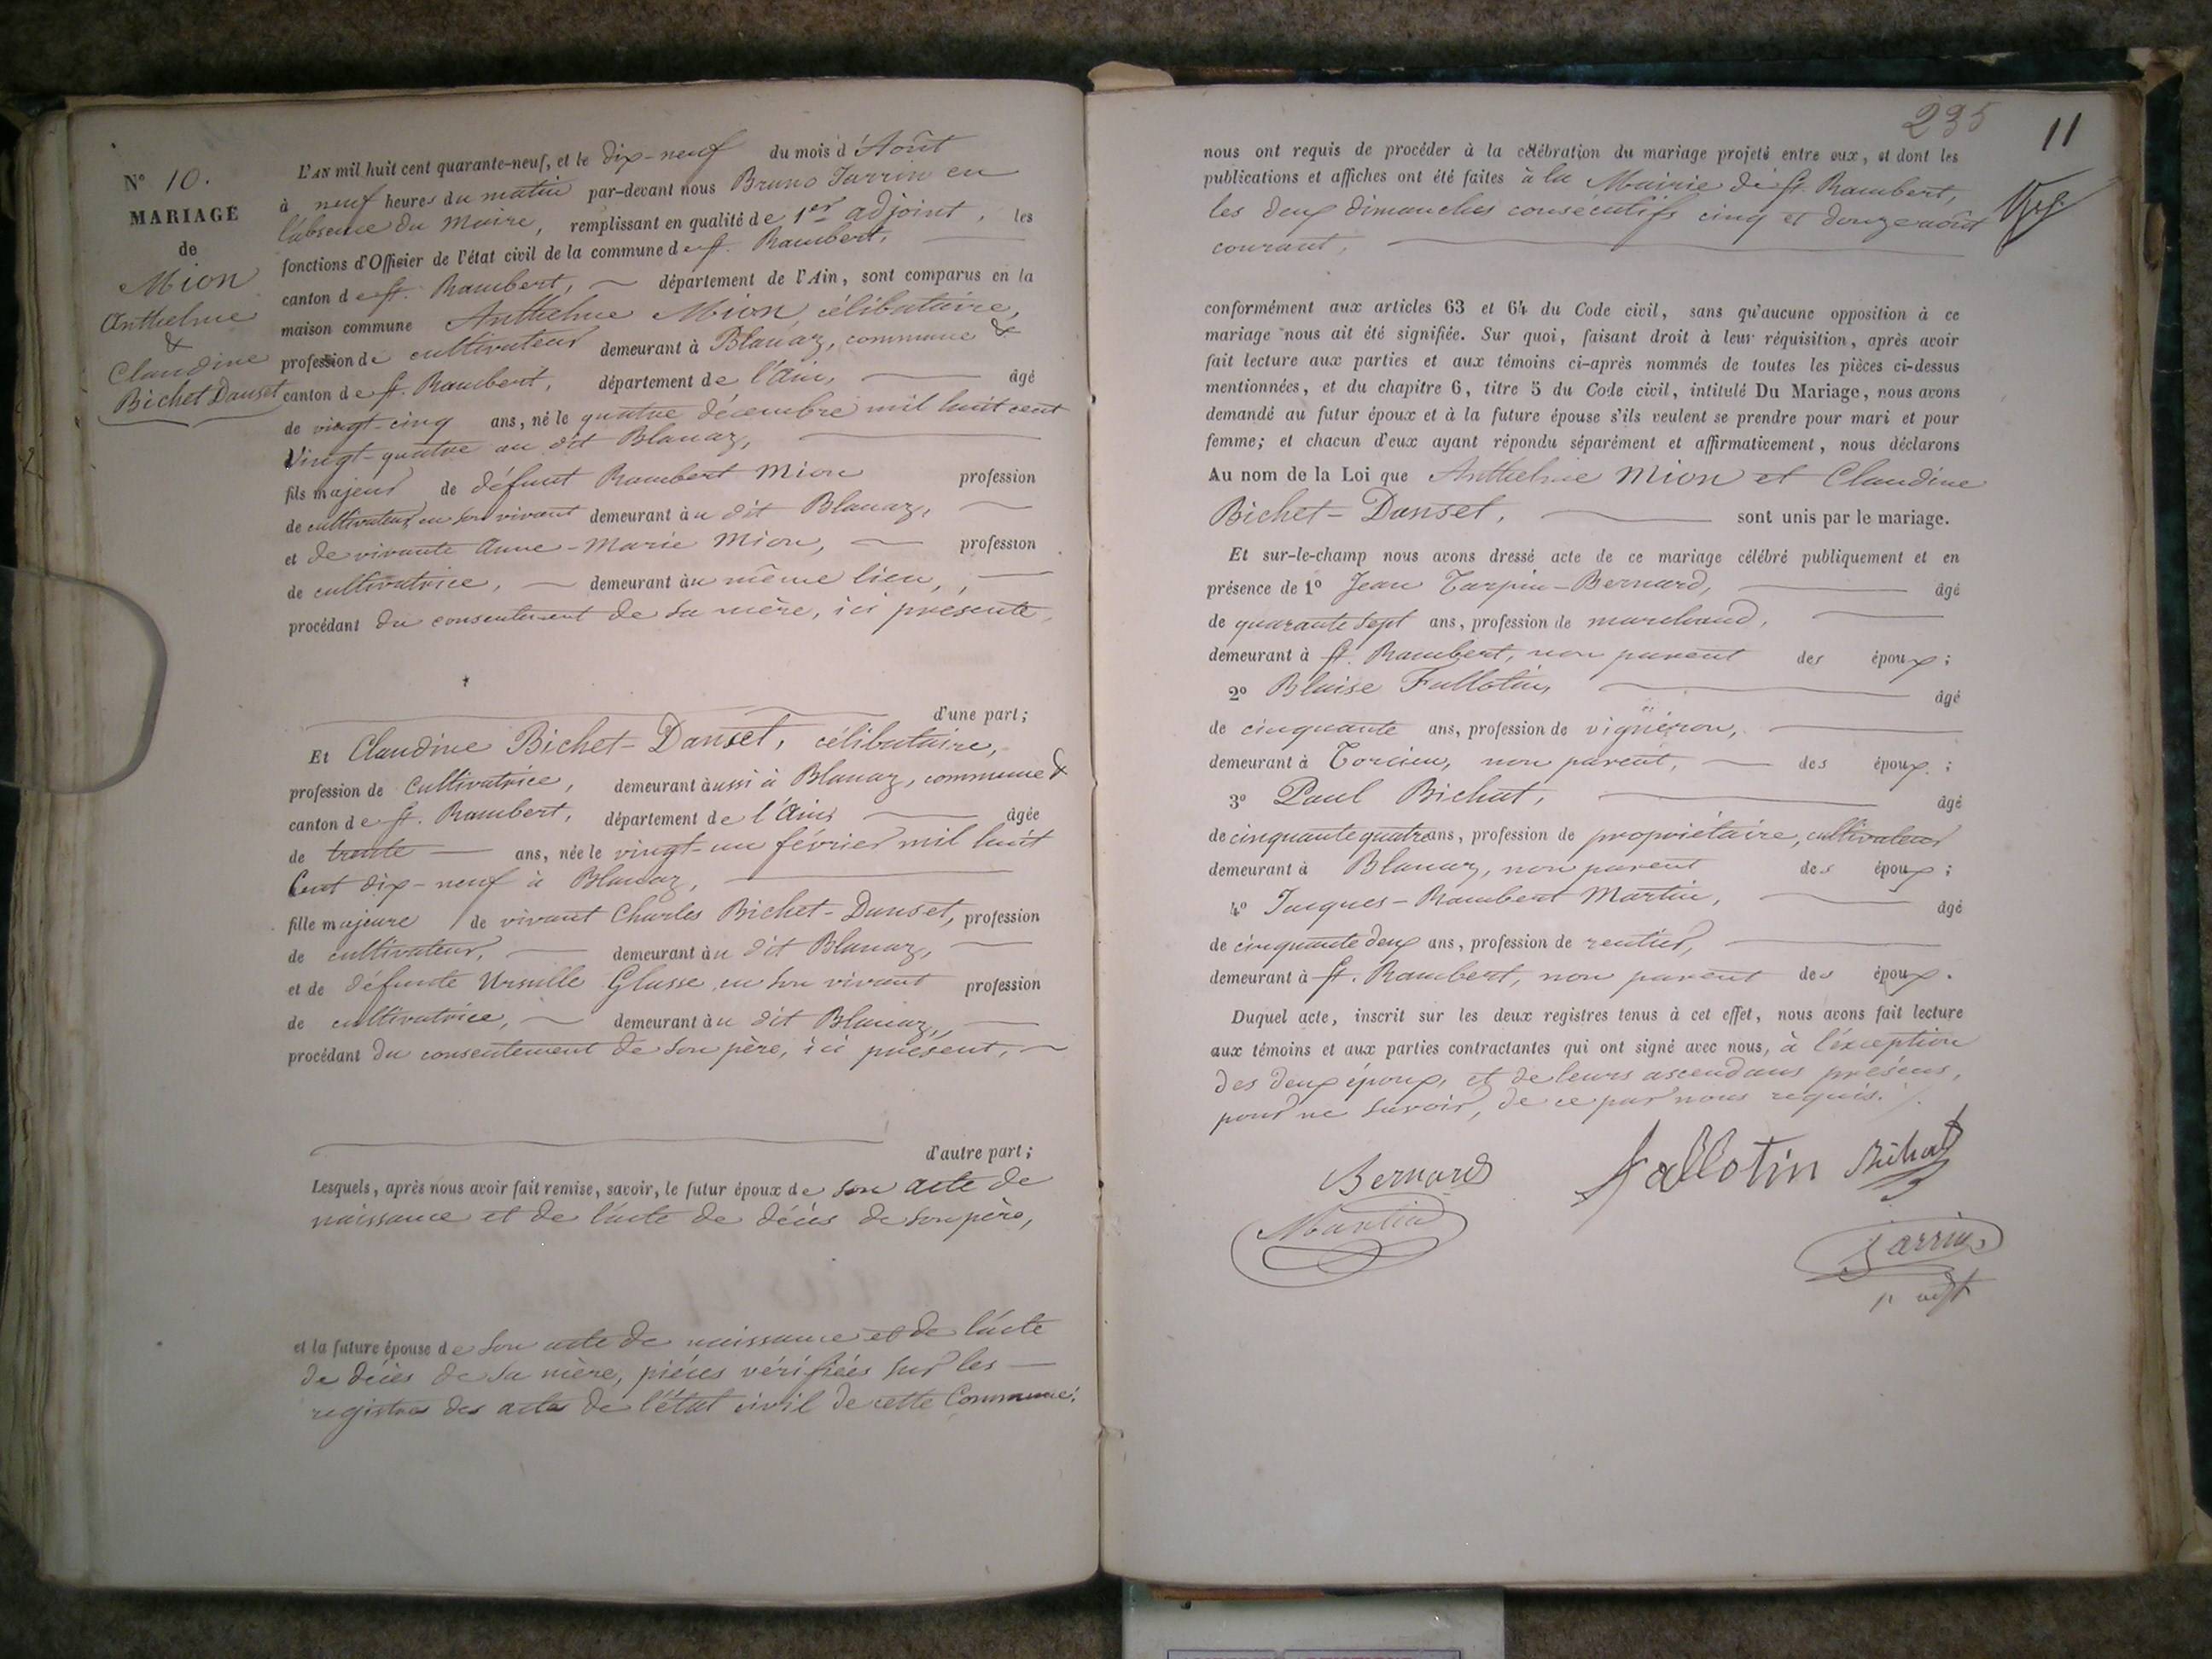 N° 10.
MARIAGE
de
Mion
Anthelme
&
Claudine
Bichet Danset
L'AN mil huit cent quarante-neuf, et le dix-neuf du mois d'Août
à neuf heures du matin par-devant nous Bruno Jarrin en
l'absence du Maire, remplissant en qualité de 1er adjoint, les
fonctions d'Officier de l'état civil de la commune de St. Rambert,
canton de St. Rambert, département de l'Ain, sont comparus en la
maison commune Anthelme Mion célibataire,
profession de cultivateur demeurant à Blanaz, commune &
canton de St. Rambert, département de l'Ain, âgé
de vingt-cinq ans, né le quatre décembre mil huit cent
Vingt-quatre au dit Blanaz,
fils majeur de défunt Rambert Mion profession
de cultivateur en son vivant demeurant au dit Blanaz,
et de vivante Anne-Marie Mion, profession
de cultivatrice, demeurant au même lieu,
procédant du consentement de sa mère, ici présente,
d'une part;
Et Claudine Bichet-Danset, célibataire,
profession de Cultivatrice, demeurant aussi à Blanaz, commune &
canton de St. Rambert, département de l'Ain âgée
de trente ans, née le vingt-un février mil huit
Cent dix-neuf à Blanaz,
fille majeure de vivant Charles Bichet-Danset, profession
de cultivateur, demeurant au dit Blanaz,
et de défunte Ursulle Glasse en son vivant profession
de cultivatrice, demeurant au dit Blanaz,
procédant du consentement de son père, ici présent,
d'autre part;
Lesquels, après nous avoir fait remise, savoir, le futur époux de son acte de
naissance et de l'acte de décès de son père,
et la future épouse de son acte de naissance et de l'acte
de décès de sa mère, pièces vérifiées sur les
registres des actes de l'état civil de cette Commune.
235
11
nous ont requis de procéder à la célébration du mariage projeté entre eux, et dont les
publications et affiches ont été faites à la Mairie de St. Rambert,
les deux dimanches consécutifs cinq et douze août
courant,
conformément aux articles 63 et 64 du Code civil, sans qu'aucune opposition à ce
mariage nous ait été signifiée. Sur quoi, faisant droit à leur réquisition, après avoir
fait lecture aux parties et aux témoins ci-après nommés de toutes les pièces ci-dessus
mentionnées, et du chapitre 6, titre 5 du Code civil, intitulé Du Mariage, nous avons
demandé au futur époux et à la future épouse s'ils veulent se prendre pour mari et pour
femme; et chacun d'eux ayant répondu séparément et affirmativement, nous déclarons
Au nom de la Loi que Anthelme Mion et Claudine
Bichet-Danset, sont unis par le mariage.
Et sur-le-champ nous avons dressé acte de ce mariage célébré publiquement et en
présence de 1° Jean Tarpin-Bernard, âgé
de quarante sept ans, profession de marchand,
demeurant à St. Rambert, non parent des époux;
2° Blaise Fallotin, âgé
de cinquante ans, profession de vigneron,
demeurant à Torcieu, non parent, des époux;
3° Paul Bichat, âgé
de cinquante quatre ans, profession de propriétaire, cultivateur
demeurant à Blanaz, non parent des époux;
4° Jacques-Rambert Martin, âgé
de cinquante deux ans, profession de rentier,
demeurant à St. Rambert, non parent des époux.
Duquel acte, inscrit sur les deux registres tenus à cet effet, nous avons fait lecture
aux témoins et aux parties contractantes qui ont signé avec nous, à l'exception
des deux époux, et de leurs ascendans présens,
pour ne savoir, de ce par nous requis.
Bernard Fallotin Bichat
Martin Jarrin
1r adjt